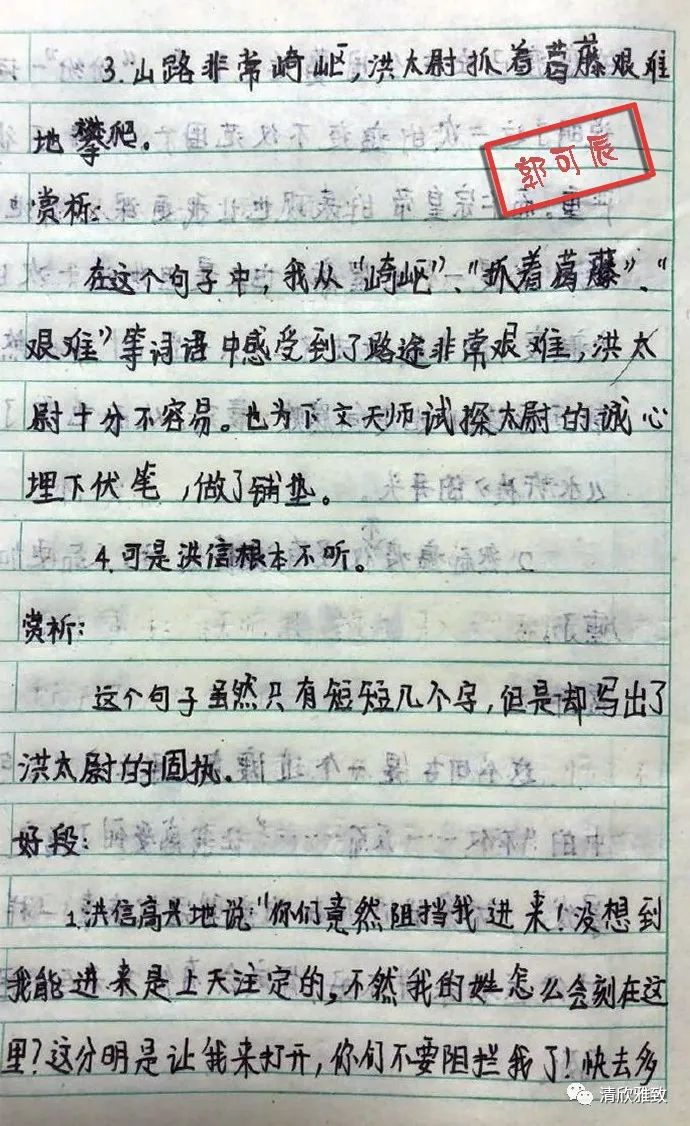 3.山路非常崎岖,洪太尉抓着葛藤艰难
地攀爬。
郭可辰
赏析:
在这个句子中,我从“崎岖”、“抓着葛藤”、“
艰难”等词语中感受到了路途非常艰难,洪太
尉十分不容易。也为下文天师试探太尉的诚心
埋下伏笔,做了铺垫。
4.可是洪信根本不听。
赏析:
这个句子虽然只有短短几个字,但是却写出了
洪太尉的固执。
好段:
1.洪信高兴地说:“你们竟然阻挡我进来!没想到
我能进来是上天注定的,不然我的姓怎么会刻在这
里?这分明是让我来打开,你们不要阻拦我了!快去多
清欣雅致